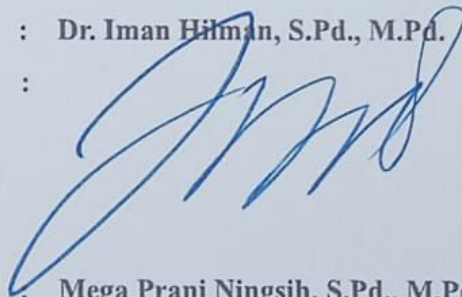 : Dr. Iman Hilman, S.Pd., M.Pd.
:
: Mega Prani Ningsih, S.Pd., M.Pd